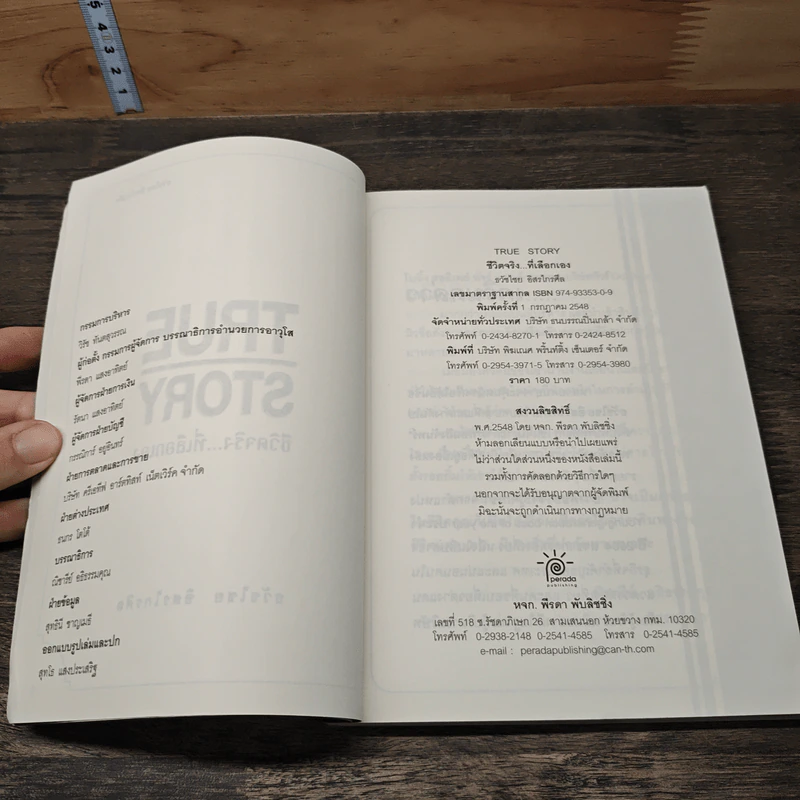 กรรมการบริหาร
วิรัช ทันตสุวรรณ
ผู้ก่อตั้ง กรรมการผู้จัดการ บรรณาธิการอำนวยการอาวุโส
พีรดา แสงอาทิตย์
ผู้จัดการฝ่ายการเงิน
รัตนา แสงอาทิตย์
ผู้จัดการฝ่ายบัญชี
กรรณิการ์ อยู่อินทร์
ฝ่ายการตลาดและการขาย
บริษัท ครีเอทีฟ อาร์ตทิสท์ เน็ตเวิร์ค จำกัด
ฝ่ายต่างประเทศ
ธนกร โตโต้
บรรณาธิการ
ณิชารีย์ อธิธรรมคุณ
ฝ่ายข้อมูล
สุทธินี ชาญเมธี
ออกแบบรูปเล่มและปก
สุทโธ แสงประเสริฐ
TRUE STORY
ชีวิตจริง...ที่เลือกเอง
ธวัชไชย อิสรไกรศีล
เลขมาตราฐานสากล ISBN 974-93353-0-9
พิมพ์ครั้งที่ 1 กรกฎาคม 2548
จัดจำหน่ายทั่วประเทศ บริษัท ธนบรรณปิ่นเกล้า จำกัด
โทรศัพท์ 0-2434-8270-1 โทรสาร 0-2424-8512
พิมพ์ที่ บริษัท พิฆเณศ พริ้นท์ติ้ง เซ็นเตอร์ จำกัด
โทรศัพท์ 0-2954-3971-5 โทรสาร 0-2954-3980
ราคา 180 บาท
สงวนลิขสิทธิ์
พ.ศ.2548 โดย หจก. พีรดา พับลิชชิ่ง
ห้ามลอกเลียนแบบหรือนำไปเผยแพร่
ไม่ว่าส่วนใดส่วนหนึ่งของหนังสือเล่มนี้
รวมทั้งการคัดลอกด้วยวิธีการใดๆ
นอกจากจะได้รับอนุญาตจากผู้จัดพิมพ์
มิฉะนั้นจะถูกดำเนินการทางกฎหมาย
perada
publishing
หจก. พีรดา พับลิชชิ่ง
เลขที่ 518 ซ.รัชดาภิเษก 26 สามเสนนอก ห้วยขวาง กทม. 10320
โทรศัพท์ 0-2938-2148 0-2541-4585 โทรสาร 0-2541-4585
e-mail : peradapublishing@can-th.com
5 4 3 2 1